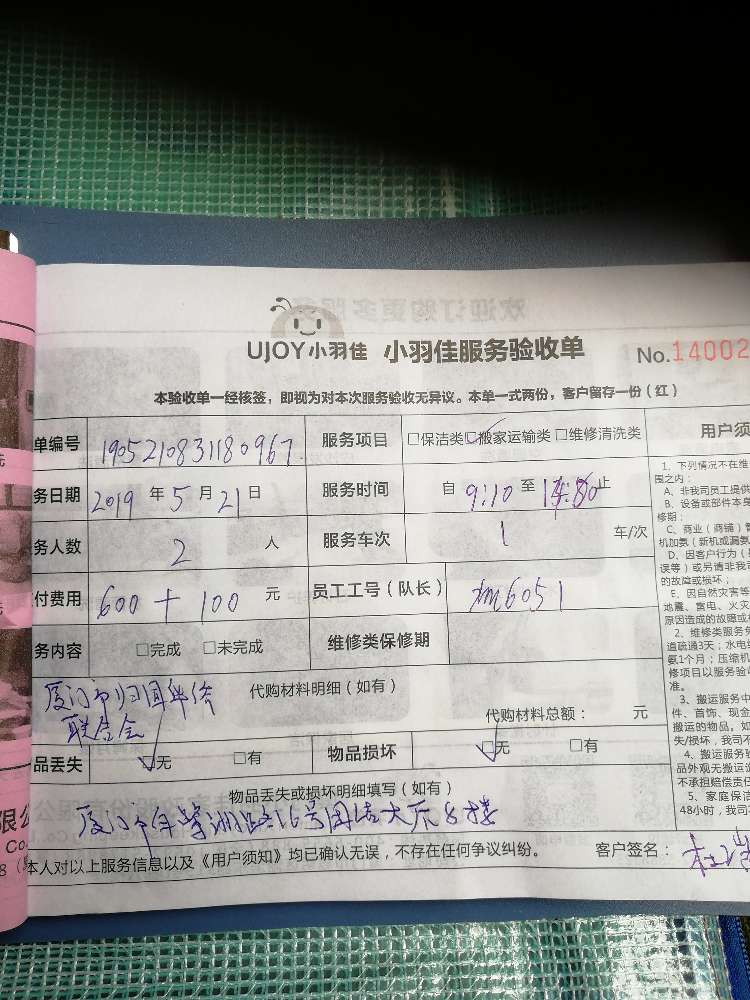 欢迎订购更多服务
UJOY小羽佳 小羽佳服务验收单 No.14002
本验收单一经核签，即视为对本次服务验收无异议。本单一式两份，客户留存一份（红）
单编号 1905210831180967 服务项目 □保洁类 □搬家运输类 □维修清洗类 用户须
务日期 2019 年 5 月 21 日 服务时间 自 9:10 至 止
务人数 2 人 服务车次 1 车/次
付费用 600 + 100 元 员工工号（队长） 6051
务内容 □完成 □未完成 维修类保修期
厦门市归国华侨 代购材料明细（如有）
联合会 代购材料总额： 元
品丢失 □无 □有 物品损坏 □无 □有
物品丢失或损坏明细填写（如有）
厦门市 16号国 大 8楼
本人对以上服务信息以及《用户须知》均已确认无误，不存在任何争议纠纷。 客户签名：
1、下列情况不在维
围之内：
A、非我司员工提供
B、设备或部件本身
修期；
C、商业（商铺）
机加氨（新机或漏氨
D、因客户行为（
误等）或另请非我
的故障或损坏；
E、因自然灾害等
地震、雷电、火灾
原因造成的故障或
2、维修类服务免
道疏通3天；水电维
氨1个月；压缩机
修项目以服务验收
准。
3、搬运服务中
件、首饰、现金
搬运的物品。如
失/损坏，我司不
4、搬运服务验
品外观无搬运造
不承担赔偿责任
5、家庭保洁
48小时，我司
元
元
限公
Co.
8